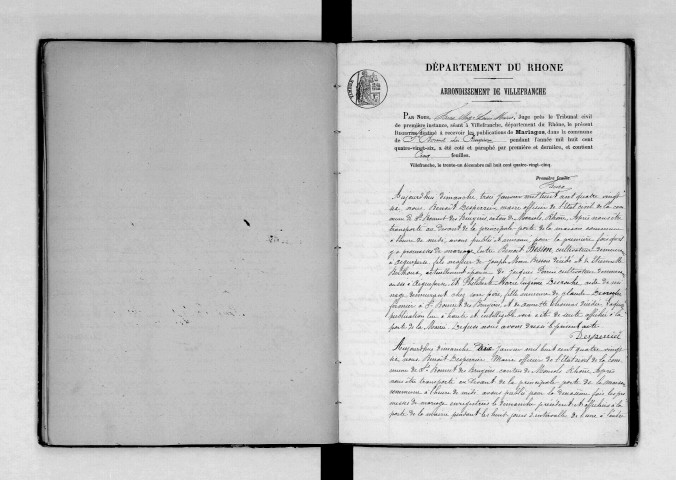 DÉPARTEMENT DU RHONE
ARRONDISSEMENT DE VILLEFRANCHE
PAR NOUS, Juge près le Tribunal civil
de première instance, séant à Villefranche, département du Rhône, le présent
Registre destiné à recevoir les publications de Mariages, dans la commune
de St Bonnet des Bruyères pendant l'année mil huit cent
quatre-vingt-six, a été coté et paraphé par première et dernière, et contient
Cinq feuilles.
Villefranche, le trente-un décembre mil huit cent quatre-vingt-cinq.
Première feuille
Aujourd'hui dimanche trois janvier mil huit cent quatre vingt
six, nous Benoît Desperrier, maire officier de l'état civil de la com
mune de St Bonnet des Bruyères, canton de Monsols, Rhône, après nous être
transporté au devant de la principale porte de la maison commune
à l'heure de midi, avons publié et annoncé pour la première fois
promesse de mariage, entre Benoît Besson, cultivateur demeurant
à Aigueperse, fils majeur de Joseph Marie Besson décédé et de
actuellement épouse de Jacques cultivateur demeurant
aussi à Aigueperse, Et Philiberte Marie Eugénie Decroche
demeurant chez son père, fille mineure de Claude Decroche
fermier à St Bonnet des Bruyères, et de décédée, laquelle
publication lue à haute et intelligible voix a été de suite affichée à la
porte de la Mairie. De quoi nous avons dressé le présent acte
Desperrier
Aujourd'hui dimanche Dix janvier mil huit cent quatre vingt
six, nous Benoît Desperrier Maire officier de l'état civil de la com
mune de St Bonnet des Bruyères canton de Monsols Rhône, après
nous être transporté au devant de la principale porte de la maison
commune à l'heure de midi, avons publié pour la deuxième fois les pro
messes de mariage enregistrées le dimanche précédent et affichées à la
porte de la mairie pendant les huit jours d'intervalle de l'une à l'autre